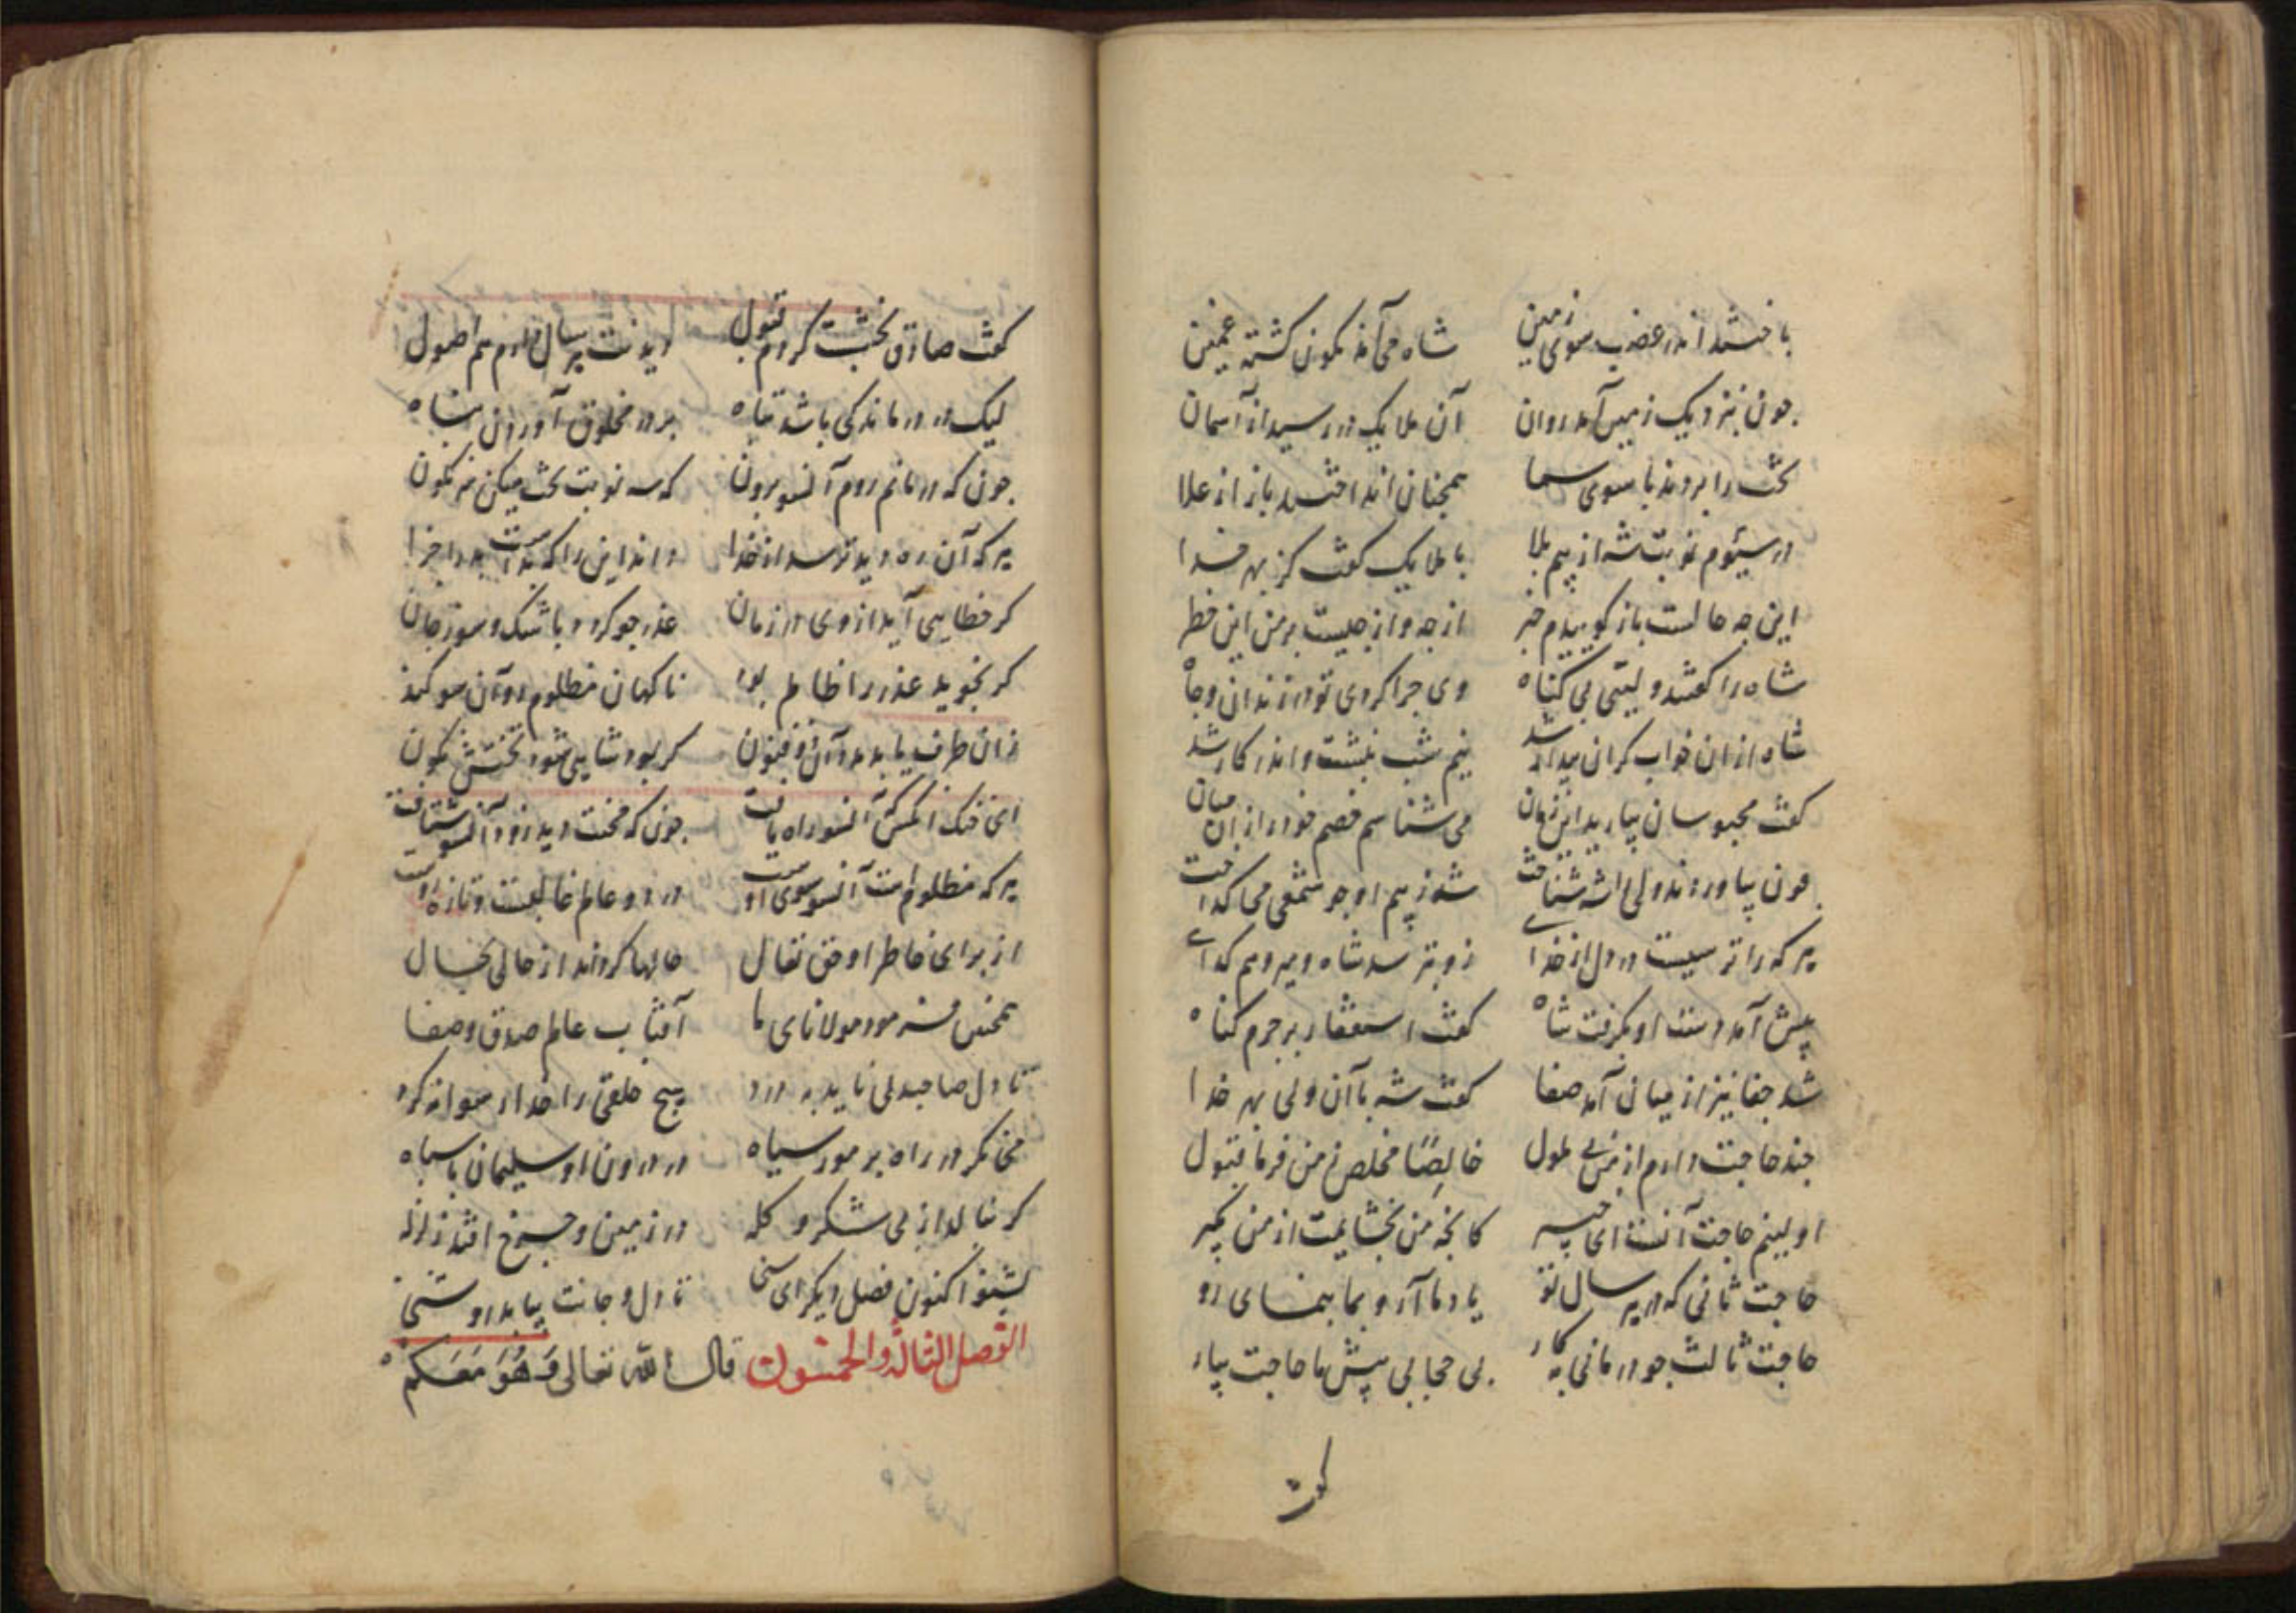 با خشند اندر عضب سوی زمین شاه می‌آمد نکون کشته غمین
جون بنزدیک زمین آمد روان آن ملایک در رسید از آسمان
تخت را بردند با سوی سما همجنان انداختند باز از علا
در سیّوم نوبت شه از بیم بلا با ملایک کفت کز بهر خدا
این جه حالست باز کوییدم خبر از جه و از جیست بر من این خطر
شاه را کفتند ولیّی بی کناه وی جرا کردی تو در زندان و جاه
شاه از ان خواب کران بیدار شد نیم شب بنشست و اندر کار شد
کفت محبوسان بیارید این زمان می شناسم خصم خود را از ان میان
جون بیاوردند ولی را شه شناخت شد ز بیم او جو شمعی می کداخت
هر که را ترسیست در دل از خدای زو بترسد شاه و میر و هم کدای
پیش آمد دست او بکرفت شاه کفت استغفار بر جرم کناه
شد جفا نیز از میان آمد صفا کفت شه با آن ولی بهر خدا
جند حاجت دارم از من بی ملول خالصًا مخلص ز من فرما قبول
اولینم حاجت آنست ای خبیر کانجه من بخشایمت از من بکیر
حاجت ثانی که در هر سال تو یاد ما آر و بما بنمای رو
حاجت ثالث جو در مانی به کار بی حجابی پیش ما حاجت بیار
کفت
کفت صادق بخششت کردم قبول دیدنت هر سال دارم هم اصول
لیک در درماندکی باشد تباه بر در مخلوق آوردن پناه
جون که در مانم روم آنسو برون که سه نوبت تخت میکن سرنکون
هر که آن ره دید ترسد از خدا داند این را که بدست بد را جزا
کر خطایی آید از وی در زمان عذر جو کردد با شک و سوز جان
کر نجوید عذر را ظالم بود ناکهان مظلوم رو آن سو کند
زان طرف یابد مدد آن ذو فنون کر بود شاهی شود تختش نکون
ای خنک آنکس که آنسو راه یافت جون که محنت دید زود آنسو شتافت
هر که مظلوم است آنسو سوی اوست در دو عالم غالبست و تازه روست
از برای خاطر او حق تعال حالها کرداند از حالی بحال
همجنین فرمود مولانای ما آفتاب عالم صدق و صفا
تا دل صاحبدلی ناید به درد هیج خلقی را خدا رسوا نکرد
می نکر در راه بر مور سیاه در درون او سلیمان با سپاه
کر بنالد زار بی شکر و کله در زمین و جرخ افتد زلزله
بشنو اکنون فصل دیکر ای سخی تا دل و جانت بیابد روشنی
الفصل الثالث والخمسون قال الله تعالی وَهُوَ مَعَكُم